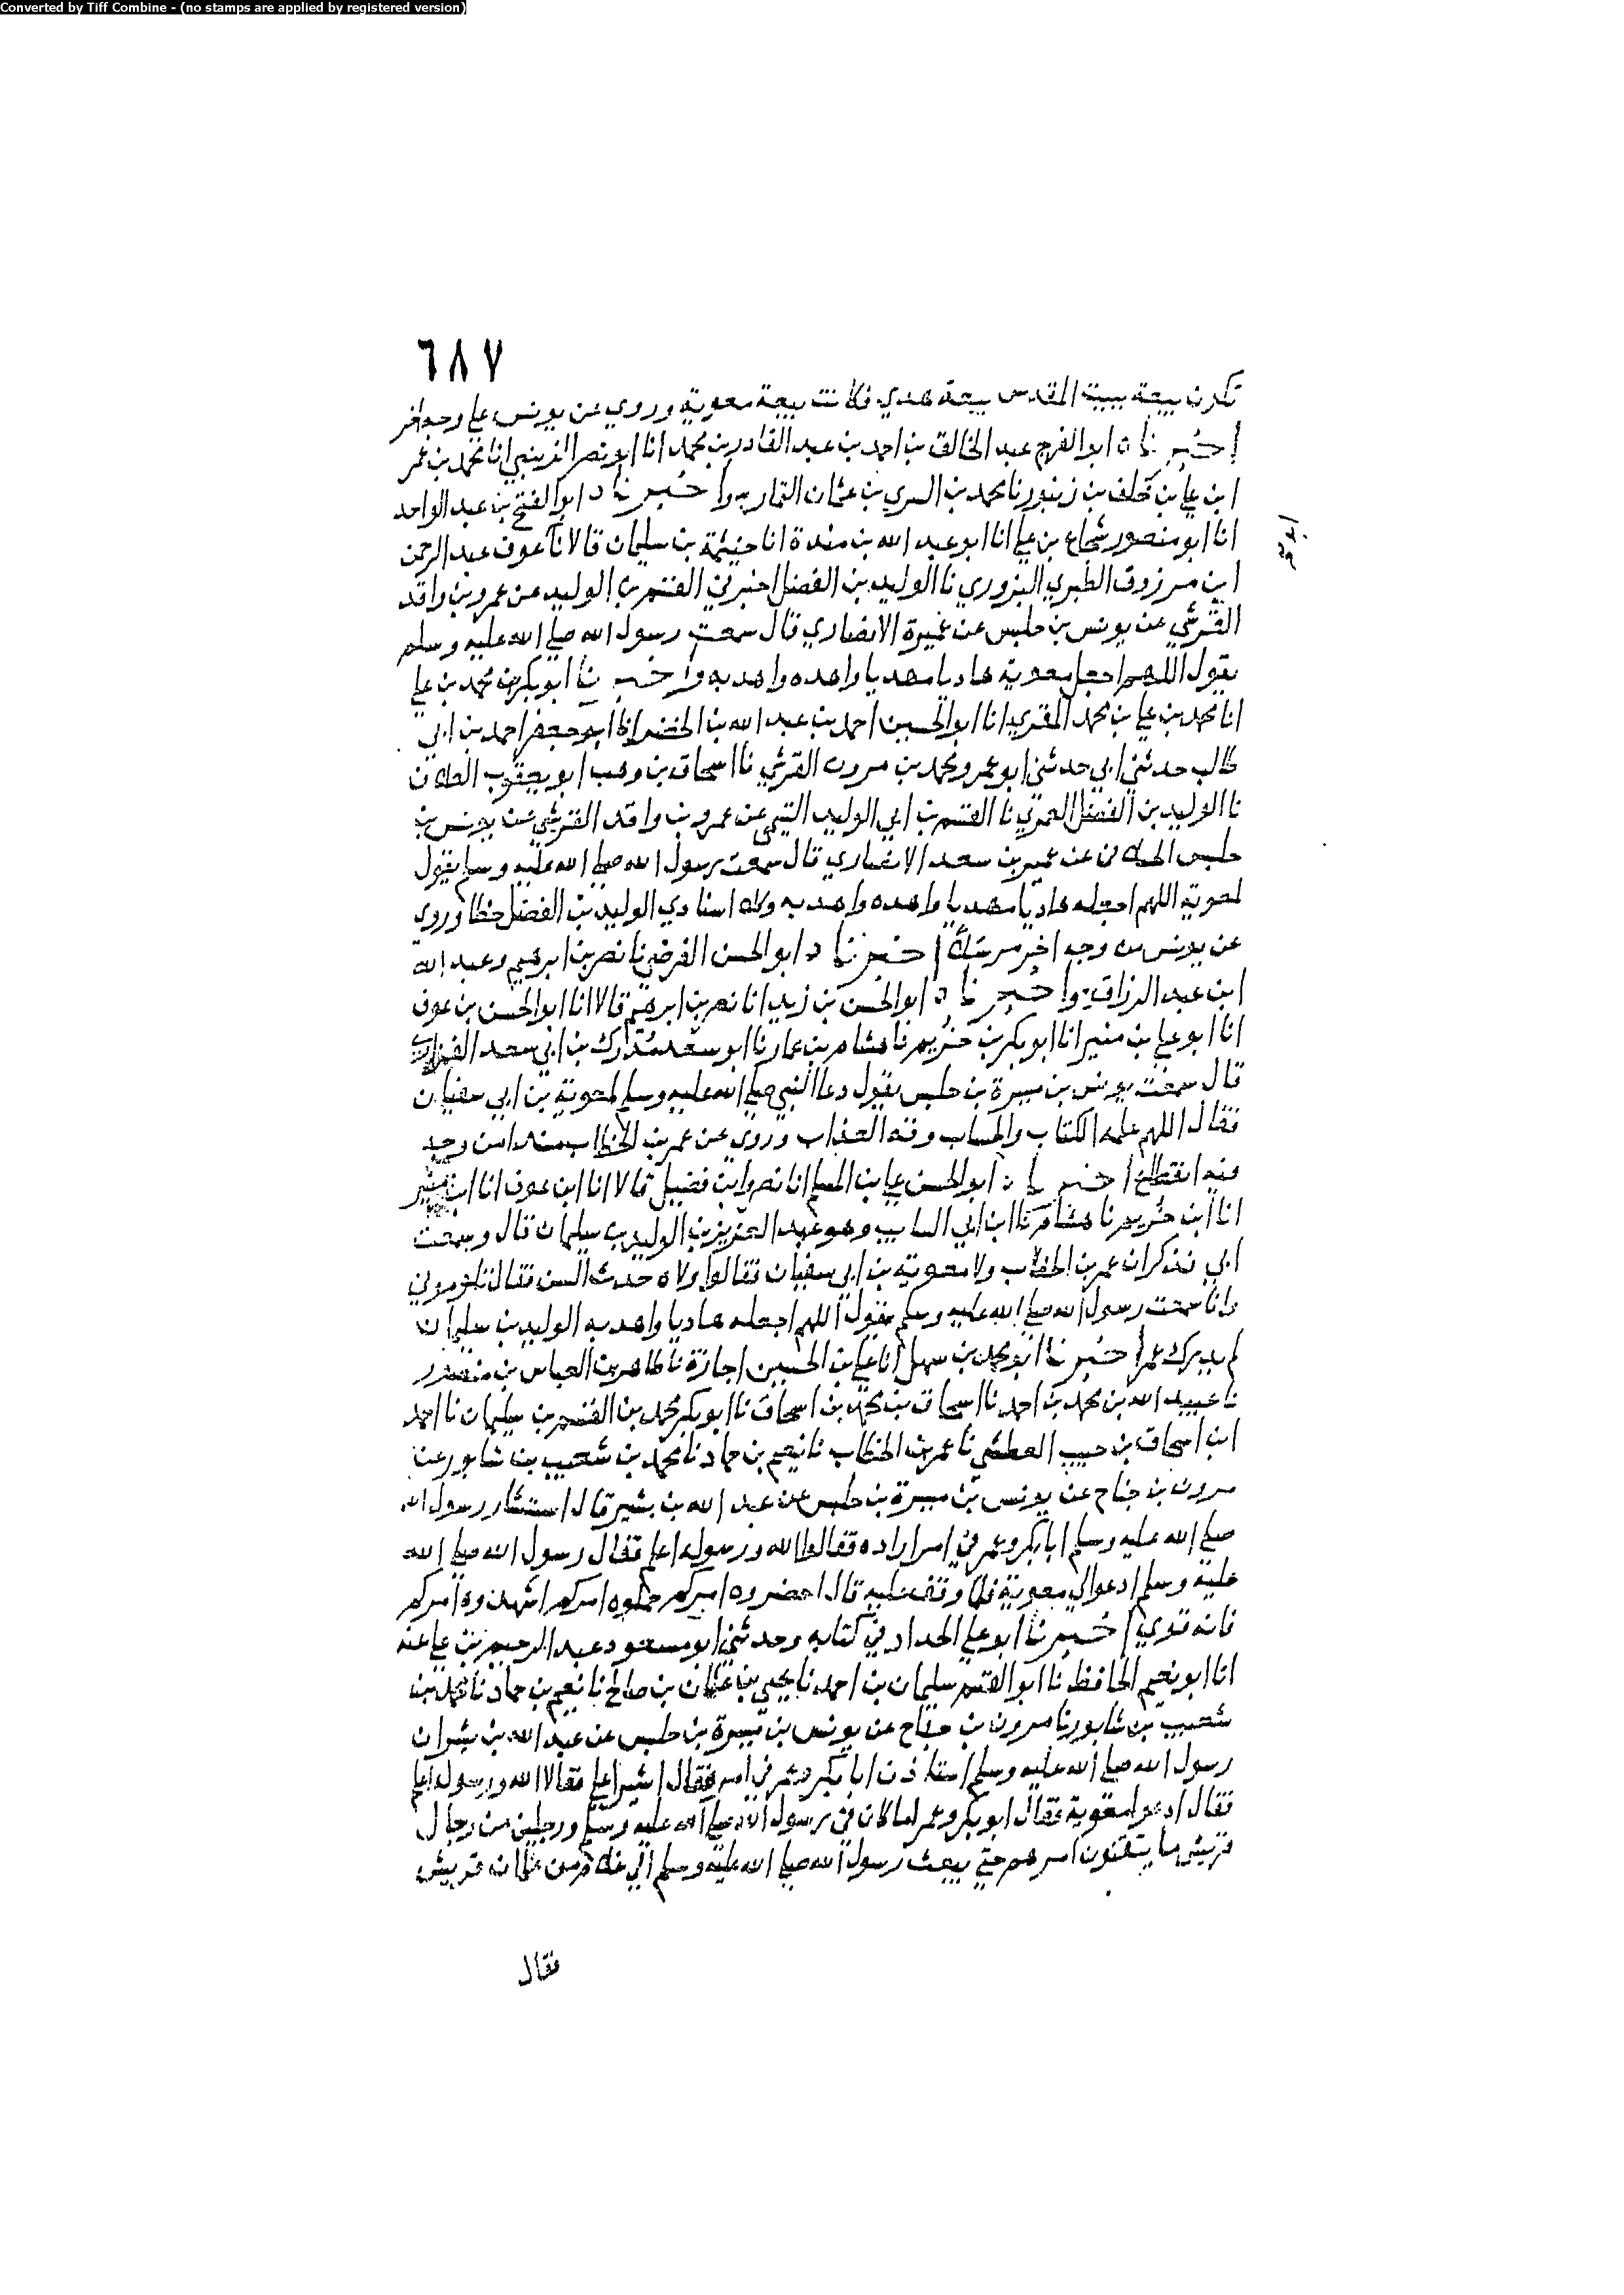 Converted by Tiff Combine - (no stamps are applied by registered version)
٦٨٧
تكون بيعة ببيت المقدس بيعة هدي فكانت بيعة معوية وروي عن يونس علي وجه اخر
اخبرناه ابو الفرج عبد الخالق بن احمد بن عبد القادر بن محمد انا ابو نصر الزينبي انا محمد بن عمر
ابن علي بن خلف بن زنبور نا محمد بن السري بن عثمان التمار به واخبرناه ابو الفتح بن عبد الواحد
انا ابو منصور شجاع بن علي انا ابو عبد الله بن مندة انا خيثمة بن سليمان قالا نا عوف عبد الرحمن
ابن مرزوق الطبري البزوري نا الوليد بن الفضل اخبرني القسم بن الوليد عن عمرو بن واقد
القرشي عن يونس بن حلبس عن عميرة الانصاري قال سمعت رسول الله صلي الله عليه وسلم
يقول اللهم اجعل معوية هاديا مهديا واهده واهد به واخبرنا ابو بكر محمد بن علي
انا محمد بن علي بن محمد المقري انا ابو الحسين احمد بن عبد الله بن الخضر انا ابو جعفر احمد بن ابي
طالب حدثني ابي حدثني ابو عمرو محمد بن مرون القرشي نا اسحاق بن وهب ابو يعقوب العلاف
نا الوليد بن الفضل العنزي نا القسم بن ابي الوليد التيمي عن عمرو بن واقد القرشي عن يونس بن
حلبس عن عمير بن سعد الانصاري قال سمعت رسول الله صلي الله عليه وسلم يقول
لمعوية اللهم اجعله هاديا مهديا واهده واهد به وكلا اسنادي الوليد بن الفضل خطا وروي
عن يونس من وجه اخر مرسلا اخبرناه ابو الحسن الفرضي نا نصر بن ابرهيم وعبد الله
ابن عبد الرزاق واخبرناه ابو الحسن بن زيد انا نصر بن ابرهيم قالا انا ابو الحسن بن عوف
انا ابو علي بن منير انا ابو بكر بن خريم نا هشام بن عمار نا ابو سعد مدرك بن ابي سعد الفزاري
قال سمعت يونس بن ميسرة بن حلبس يقول دعا النبي صلي الله عليه وسلم لمعوية بن ابي سفيان
فقال اللهم علمه الكتاب والحساب وقه العذاب وروي عن عمر بن الخطاب من وجه
فيه انقطاع اخبرناه ابو الحسن علي بن المسلم انا نصر وابن فضيل قالا انا ابن عوف انا ابن منير
انا ابن خريم نا هشام نا ابن ابي السايب وهو عبد العزيز بن الوليد بن سليمان قال وسمعت
ابي يذكر ان عمر بن الخطاب ولا معوية بن ابي سفيان فقالوا ولاه حدث السن فقال تلوموني
وانا سمعت رسول الله صلي الله عليه وسلم يقول اللهم اجعله هاديا واهد به الوليد بن سليمان
لم يدرك عمر اخبرنا ابو محمد بن سهل انا علي بن الحسين اجازة نا طاهر بن العباس بن منصور
نا عبيد الله بن محمد بن احمد نا اسحاق بن محمد بن اسحاق نا ابو بكر محمد بن القسم بن سليمان نا احمد
ابن اسحاق بن حبيب العطشي نا عمر بن الخطاب نا نعيم بن حماد نا محمد بن شعيب بن شابور عن
مرون بن جناح عن يونس بن ميسرة بن حلبس عن عبد الله بن بشير قال استشار رسول الله
صلي الله عليه وسلم ابا بكر وعمر في امر اراده فقالوا الله ورسوله اعلم فقال رسول الله صلي الله
عليه وسلم ادعوا لي معوية فلما وقف عليه قال احضروه امركم حملوه امركم اشهدوه امركم
فانه قوي اخبرنا ابو علي الحداد في كتابه وحدثني ابو مسعود عبد الرحيم بن علي عنه
انا ابو نعيم الحافظ نا ابو القسم سليمان بن احمد نا يحيي بن عثمان بن صالح نا نعيم بن حماد نا محمد بن
شعيب بن شابور نا مرون بن جناح عن يونس بن ميسرة بن حلبس عن عبد الله بن بشر ان
رسول الله صلي الله عليه وسلم استاذن ابا بكر وعمر في امر فقال اشيرا علي فقالا الله ورسوله اعلم
فقال ادعوا معوية فقال ابو بكر وعمر اما كان في رسول الله صلي الله عليه وسلم ورجلين من رجال
قريش ما يتقنون امرهم حتي يبعث رسول الله صلي الله عليه وسلم الي غلام من غلمان قريش
فقال